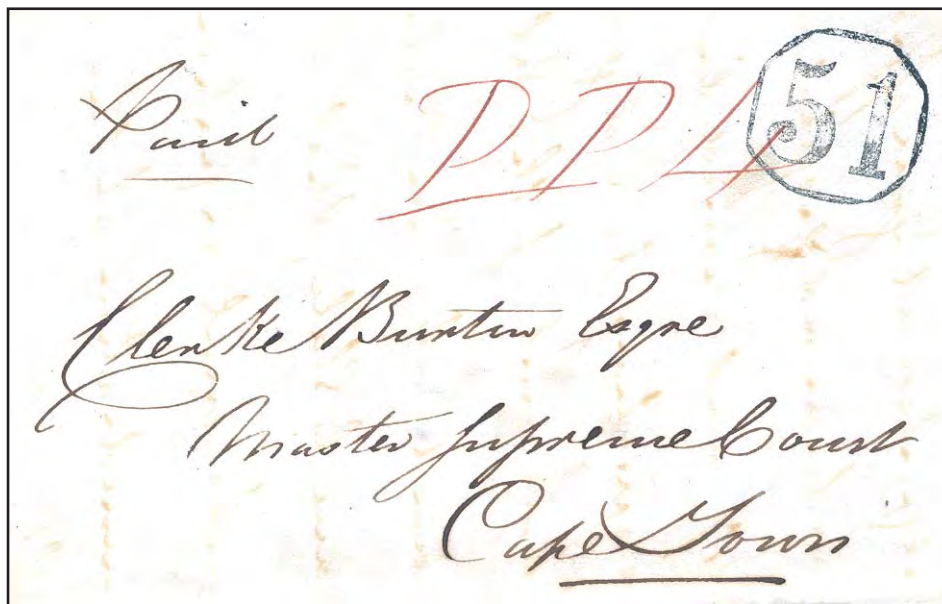 Paid
P P 4
51
Clerke Burton Esqre
Master Supreme Court
Cape Town